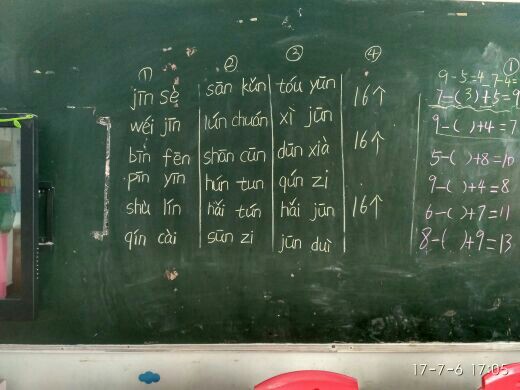 ① ② ③ ④ ①
jīn sè sān kǔn tóu yūn 16个
wéi jīn lún chuán xì jūn
bīn fēn shān cūn dūn xià 16个
pīn yīn hún tun qún zi
shù lín hǎi tún hǎi jūn 16个
qín cài sūn zi jūn duì
9-5=4 7-4=
7-(3)+5=9
9-( )+4=7
5-( )+8=10
9-( )+4=8
6-( )+7=11
8-( )+9=13
17-7-6 17:05